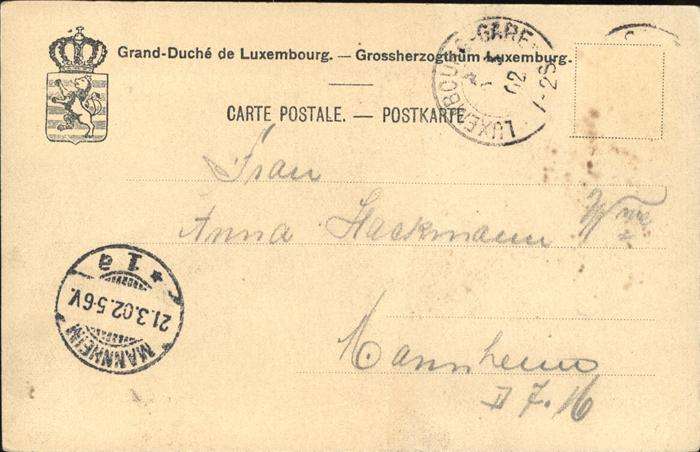 Grand-Duché de Luxembourg. — Grossherzogthum Luxemburg.
CARTE POSTALE. — POSTKARTE
LUXEMBOURG-GARE
02
7-2S
Frau
Anna Hackmann Wwe
Mannheim
D 7. 16
MANNHEIM
21.3.02.5-6V.
* 1a